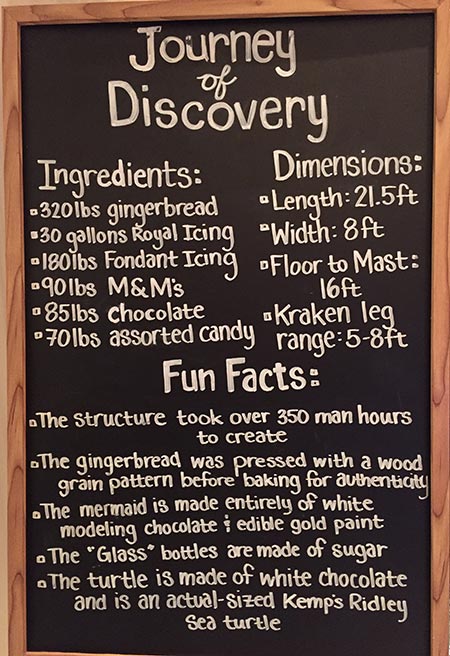 Journey
of
Discovery
Ingredients:
▫320lbs gingerbread
▫30 gallons Royal Icing
▫180lbs Fondant Icing
▫90lbs M&M's
▫85lbs chocolate
▫70lbs assorted candy
Dimensions:
▫Length: 21.5ft
▫Width: 8ft
▫Floor to Mast:
16ft
▫Kraken leg
range: 5-8ft
Fun Facts:
▫The structure took over 350 man hours
to create
▫The gingerbread was pressed with a wood
grain pattern before baking for authenticity
▫The mermaid is made entirely of white
modeling chocolate & edible gold paint
▫The "Glass" bottles are made of sugar
▫The turtle is made of white chocolate
and is an actual-sized Kemp's Ridley
Sea turtle